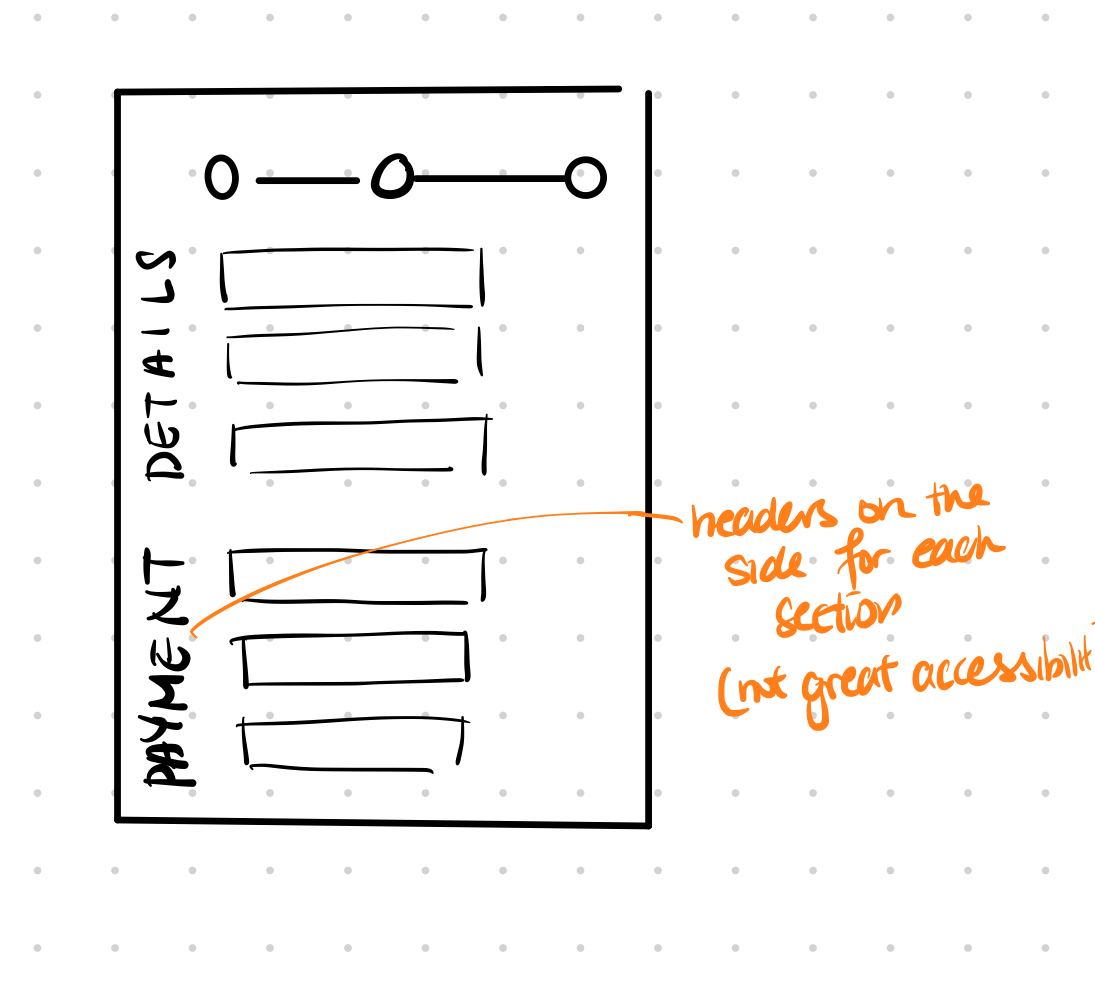 DETAILS
PAYMENT
headers on the
side for each
section
(not great accessibilit